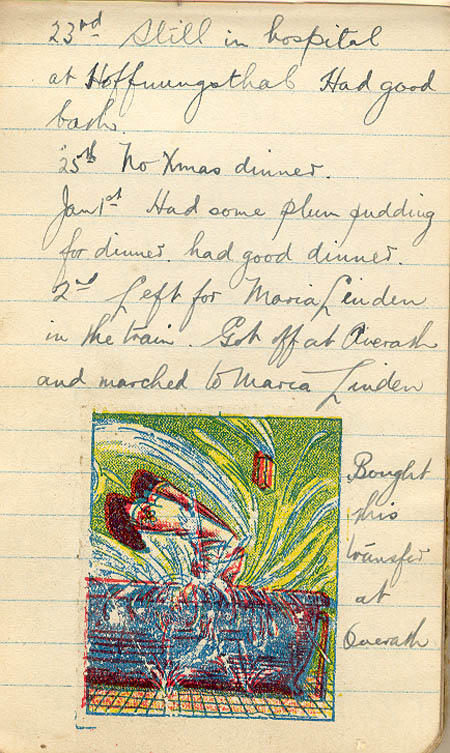 23rd Still in hospital
at Hoffnungsthal Had good
bath.
25th No Xmas dinner.
Jan 1st Had some plum pudding
for dinner. had good dinner.
2nd Left for Maria Linden
in the train. Got off at Overath
and marched to Maria Linden
Bought
this
transfer
at
Overath